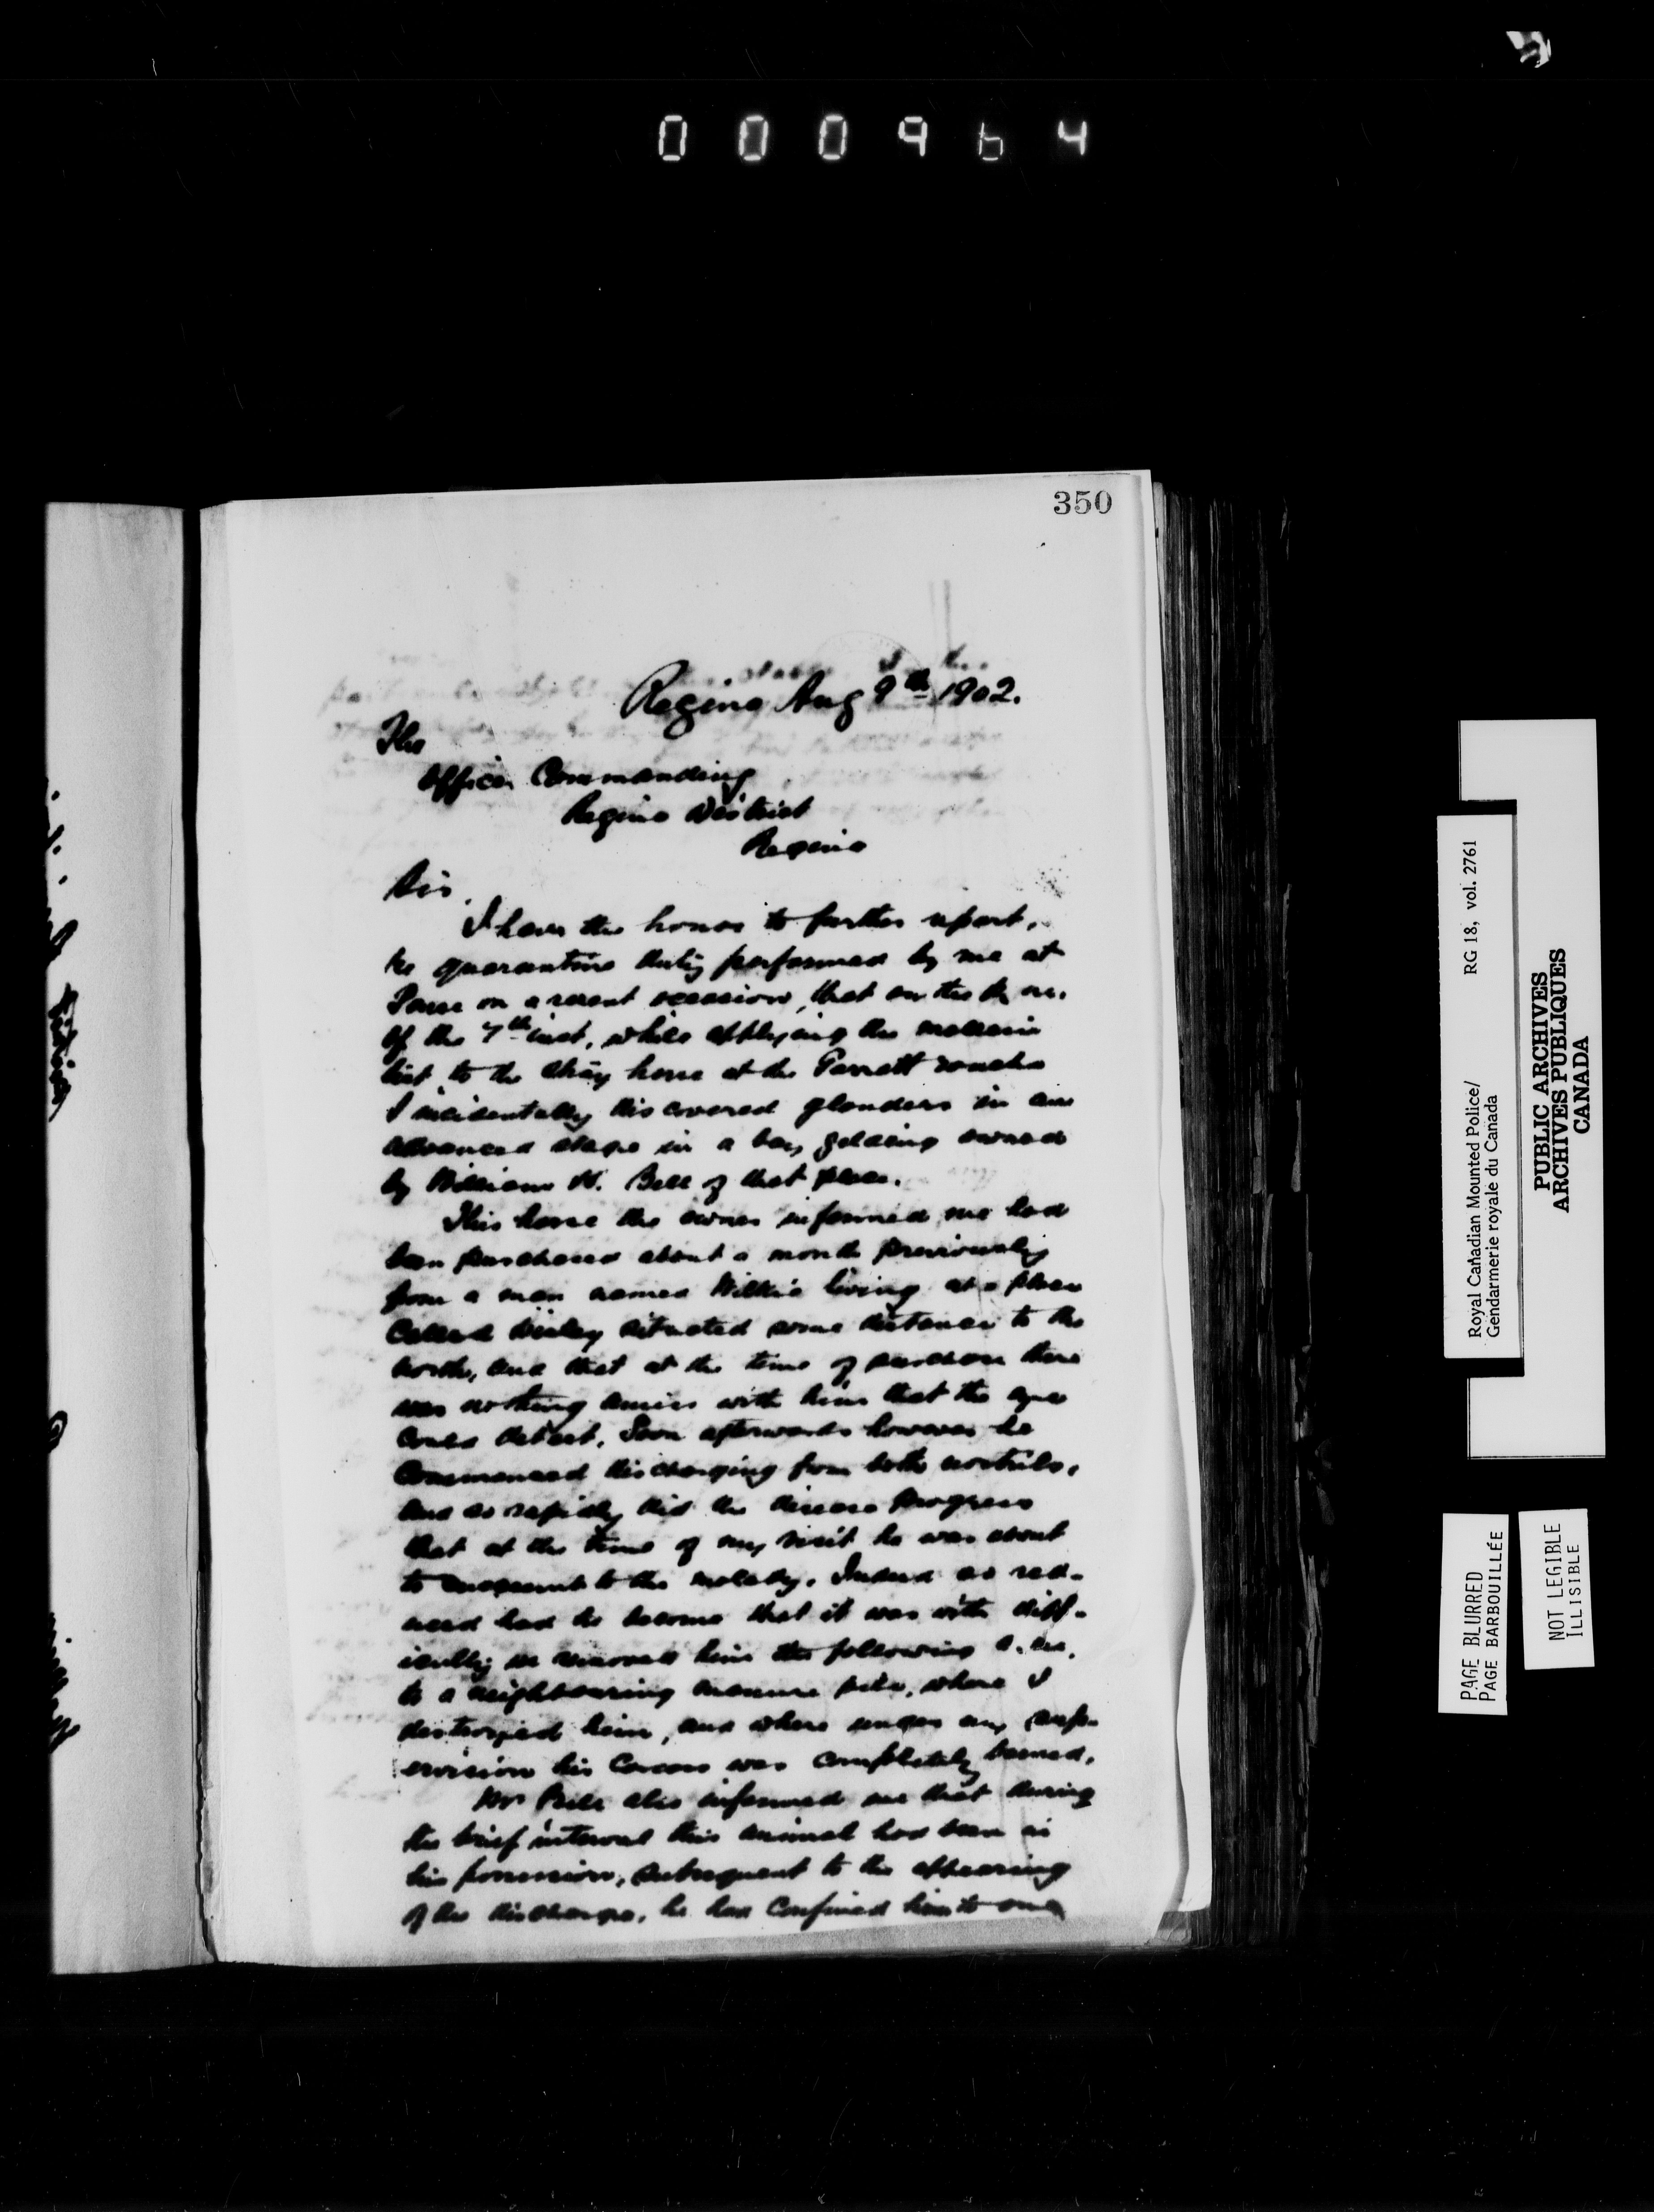 000964
350
Regina Aug 9th 1902.
The
Officer Commanding
Regina District
Regina
Sir,
I have the honor to further report,
re quarantine duty performed by me at
on a recent occasion, that on the
of the 7th inst, while applying the mallein
test to the stray horse at the Parrott rancho
I incidentally discovered glanders in an
advanced stage in a bay gelding owned
by William H. Bell of that place.
This horse the owner informed me had
been purchased about a month previously
from a man named Wilkie living at a place
called situated some distance to the
north, and that at the time of purchase there
was nothing amiss with him that the eye
could detect. Soon afterwards however he
commenced discharging from both nostrils,
and so rapidly did the disease progress
that at the time of my visit he was about
to succumb to the malady. Indeed so red-
uced had he become that it was with diff-
iculty we removed him the following a.m.
to a neighbouring manure pile, where I
destroyed him, and where under my sup-
ervision his carcass was completely burned.
Mr Bell also informed me that during
the brief interval this animal had been in
his possession, subsequent to the appearing
of the discharge, he had confined him to one
Royal Canadian Mounted Police/ RG 18, vol. 2761
Gendarmerie royale du Canada
PUBLIC ARCHIVES
ARCHIVES PUBLIQUES
CANADA
PAGE BLURRED
PAGE BARBOUILLÉE
NOT LEGIBLE
ILLISIBLE